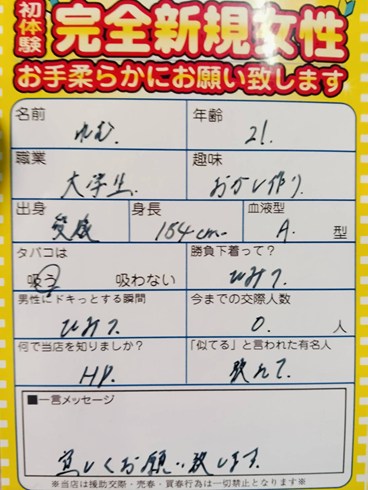 初体験
完全新規女性
お手柔らかにお願い致します
名前 れむ. 年齢 21.
職業 大学生. 趣味 おかし作り.
出身 身長 154cm 血液型 A. 型
タバコは 吸う 吸わない 勝負下着って? ひみつ.
男性にドキっとする瞬間 ひみつ. 今までの交際人数 0. 人
何で当店を知りましたか? HP. 「似てる」と言われた有名人
■一言メッセージ
宜しくお願い致します.
※当店は援助交際・売春・買春行為は一切禁止となります※